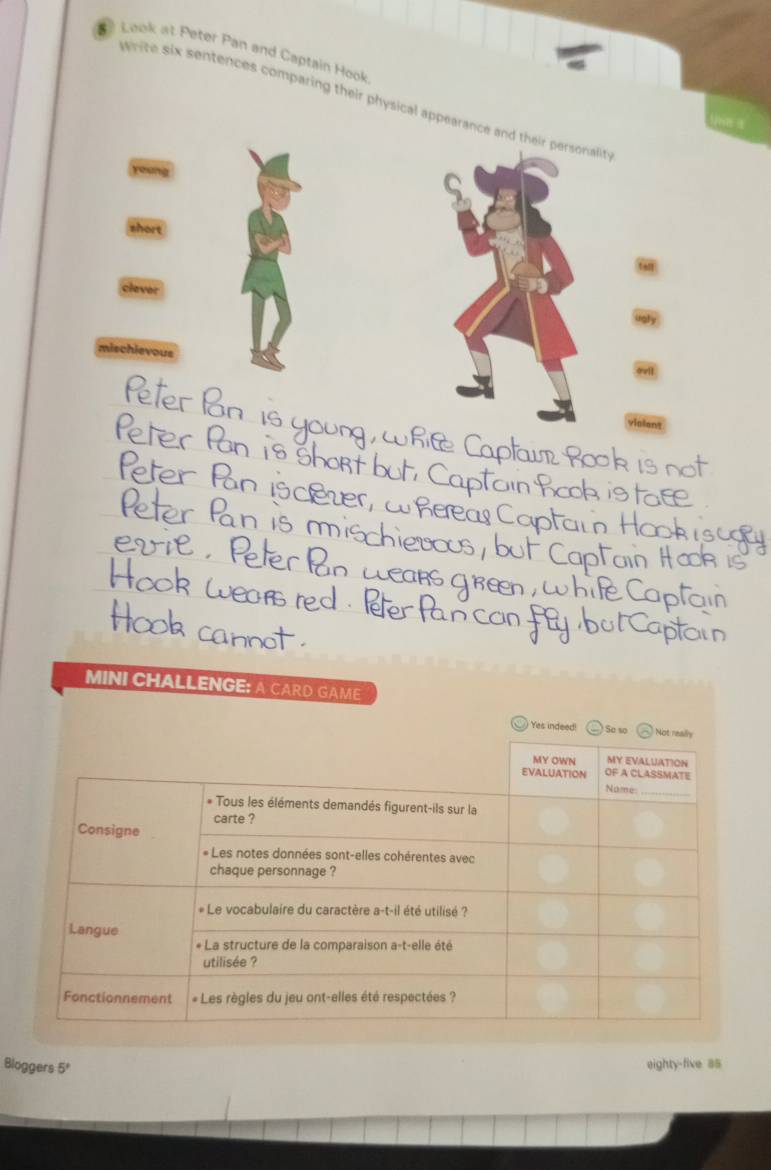 5 Look at Peter Pan and Captain Hook.
Write six sentences comparing their physical appearance and their personality.
Unit 5
young
short
clever
mischievous
tall
ugly
evil
violent
Peter Pan is young, while Captain Hook is not
Peter Pan is short but, Captain Hook is tall.
Peter Pan is clever, whereas Captain Hook is ugly
Peter Pan is mischievous, but Captain Hook is
evile. Peter Pan wears green, while Captain
Hook wears red. Peter Pan can fly, but Captain
Hook cannot.
MINI CHALLENGE: A CARD GAME
Yes indeed! So so Not really
MY OWN EVALUATION
MY EVALUATION OF A CLASSMATE
Name:
Consigne
• Tous les éléments demandés figurent-ils sur la
carte ?
• Les notes données sont-elles cohérentes avec
chaque personnage ?
Langue
• Le vocabulaire du caractère a-t-il été utilisé ?
• La structure de la comparaison a-t-elle été
utilisée ?
Fonctionnement
• Les règles du jeu ont-elles été respectées ?
Bloggers 5e
eighty-five 85